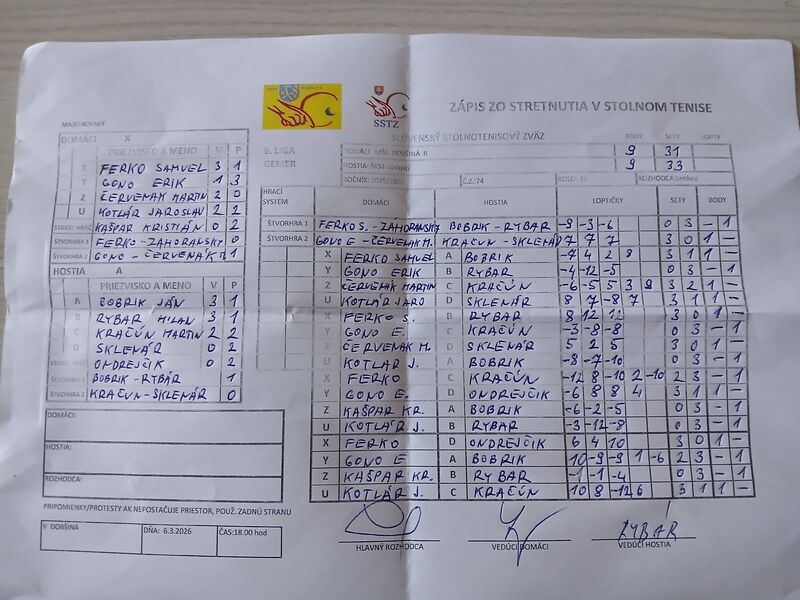 ZÁPIS ZO STRETNUTIA V STOLNOM TENISE
SSTZ
SLOVENSKÝ STOLNOTENISOVÝ ZVÄZ
MAJSTROVSKÝ
DOMÁCI X
PRIEZVISKO A MENO V P
X FERKO SAMUEL 3 1
Y GONO ERIK 1 3
Z ČERVENAK MARTIN 2 0
U KOTLÁR JAROSLAV 2 2
KAŠPAR KRISTIÁN 0 2
ŠTVORHRA 1 FERKO-ZAHORANSKÝ 0
ŠTVORHRA 2 GONO-ČERVENÁK 1
HOSTIA A
PRIEZVISKO A MENO V P
A BOBRIK JÁN 3 1
B RYBAR MILAN 3 1
C KRAČÚN MARTIN 2 2
D SKLENÁR 0 2
ONDREJČIK 0 2
ŠTVORHRA 1 BOBRIK-RYBÁR 1
ŠTVORHRA 2 KRAČUN-SKLENÁR 0
DOMÁCI:
HOSTIA:
ROZHODCA:
PRIPOMIENKY/PROTESTY AK NEPOSTAČUJE PRIESTOR, POUŽ. ZADNÚ STRANU
V DOBŠINÁ DŇA: 6.3.2026 ČAS:18.00 hod
6. LIGA
GEMER
BODY SETY LOPTY
DOMÁCI: MŠK DOBŠINÁ B 9 31
9 33
ROČNÍK: 2025/2026 Č.Z.:74 ROZHODCA:
HRACÍ SYSTÉM DOMÁCI HOSTIA LOPTIČKY SETY BODY
ŠTVORHRA 1 FERKO S.-ZAHORANSKÝ BOBRIK-RYBAR -9 -3 -6 0 3 - 1
ŠTVORHRA 2 GONO E-ČERVENAK M. KRAČUN-SKLENÁR 7 7 7 3 0 1 -
X FERKO SAMUEL A BOBRIK -7 4 2 8 3 1 1 -
Y GONO ERIK B RYBAR -4 -12 -5 0 3 - 1
Z ČERVENAK MARTIN C KRAČÚN -6 -5 5 3 9 3 2 1 -
U KOTLÁR JARO D SKLENÁR 8 7 -8 7 3 1 1 -
X FERKO S. B RYBAR 8 12 12 3 0 1 -
Y GONO E. C KRAČÚN -3 -8 -8 0 3 - 1
Z ČERVENAK M. D SKLENÁR 5 2 5 3 0 1 -
U KOTLAR J. A BOBRIK -8 -7 -10 0 3 - 1
X FERKO C KRAČÚN -12 8 -10 2 -10 2 3 - 1
Y GONO E. D ONDREJČIK -6 8 8 4 3 1 1 -
Z KAŠPAR KR. A BOBRIK -6 -2 -5 0 3 - 1
U KOTLÁR J. B RYBAR -3 -12 -8 0 3 - 1
X FERKO D ONDREJČIK 6 4 10 3 0 1 -
Y GONO E A BOBRIK 10 -9 -9 1 -6 2 3 - 1
Z KAŠPAR KR. B RYBAR -1 -1 -4 0 3 - 1
U KOTLÁR J. C KRAČÚN 10 8 -12 6 3 1 1 -
RYBÁR
HLAVNÝ ROZHODCA VEDÚCI DOMÁCI VEDÚCI HOSTIA